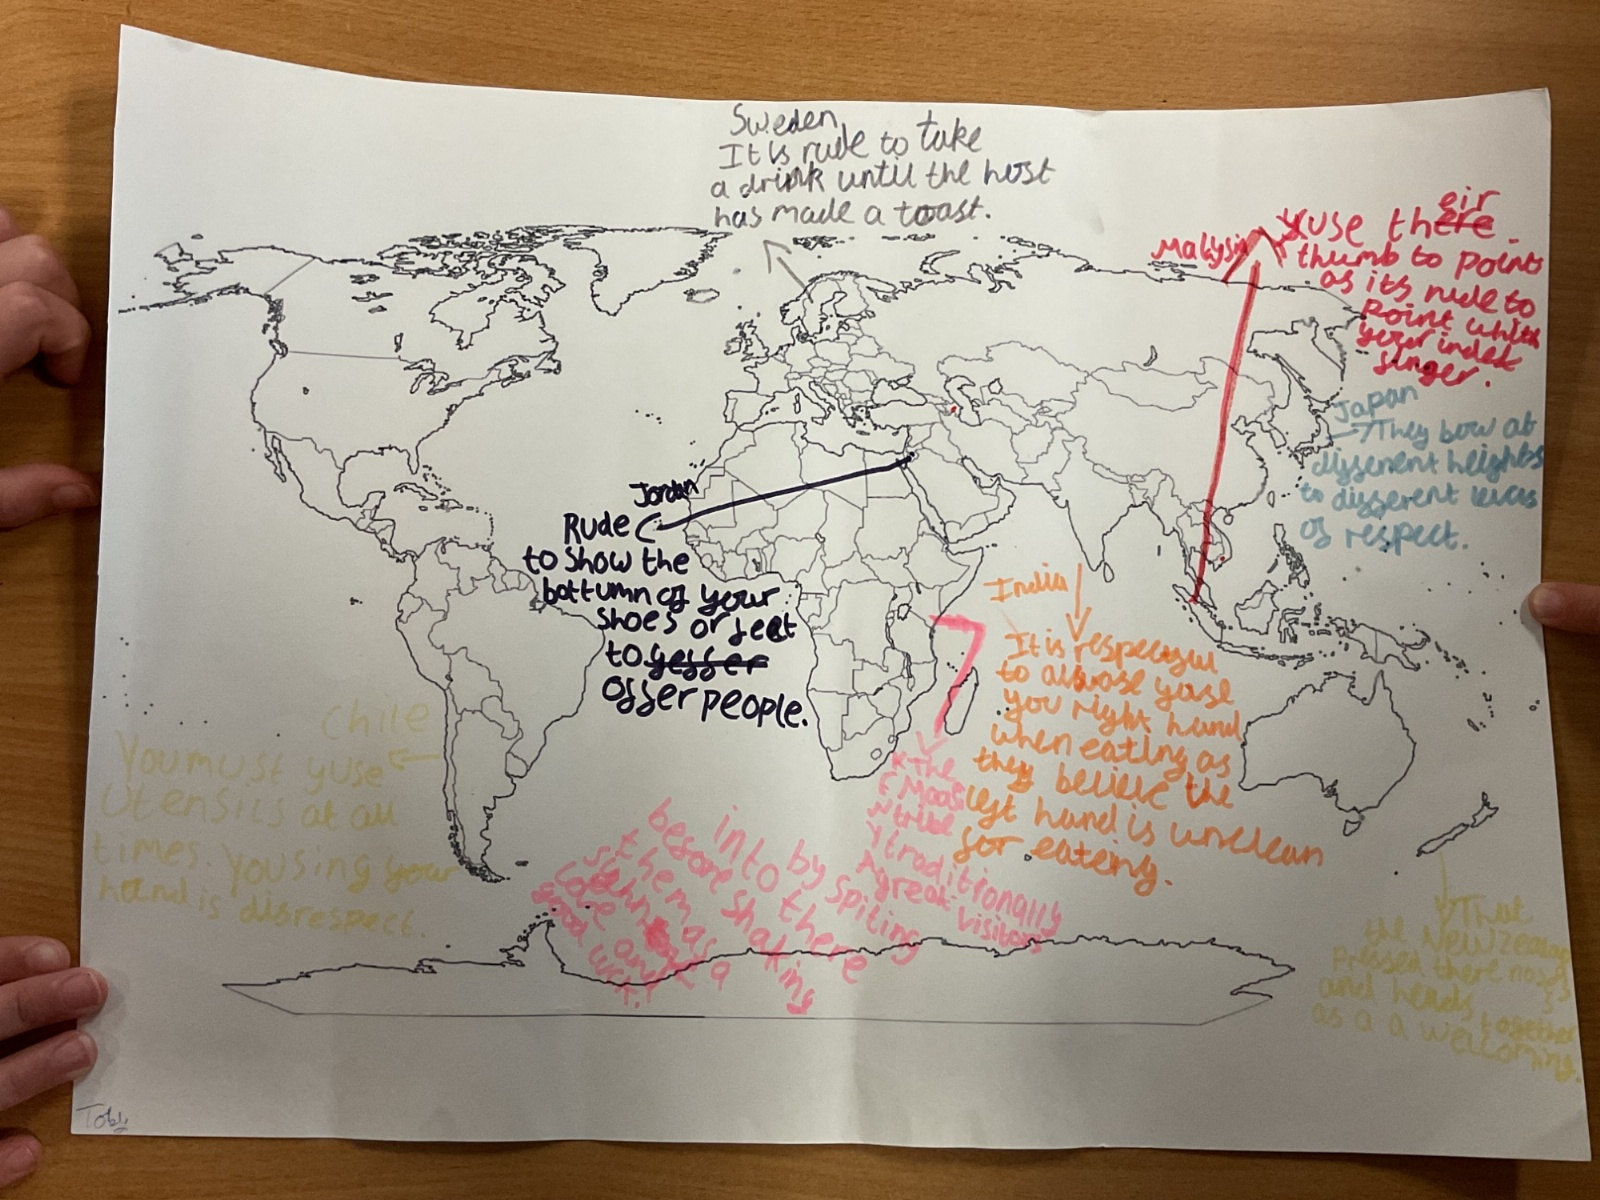 Sweden
It is rude to take
a drink until the host
has made a toast.
Malysia
yuse there eir
thumb to point
as its rude to
point whith
your indet
finger.
Japan
They bow at
different heights
to different levels
of respect.
Jordan
Rude
to show the
bottumn of your
shoes or feet
to
offer people.
India
It is respecful
to alwase yuse
you right hand
when eating as
they believe the
left hand is unclean
for eateing.
Chile
You must yuse
Utensils at all
times. Yousing your
hand is disrespect.
K the
E Maasi
N tribe
Y traditionally
A greak visitors
into by spiting
before shaking
them as a
good luck.
That
the New Zealand
pressed there noses
and heads together
as a a welcoming.
Toby